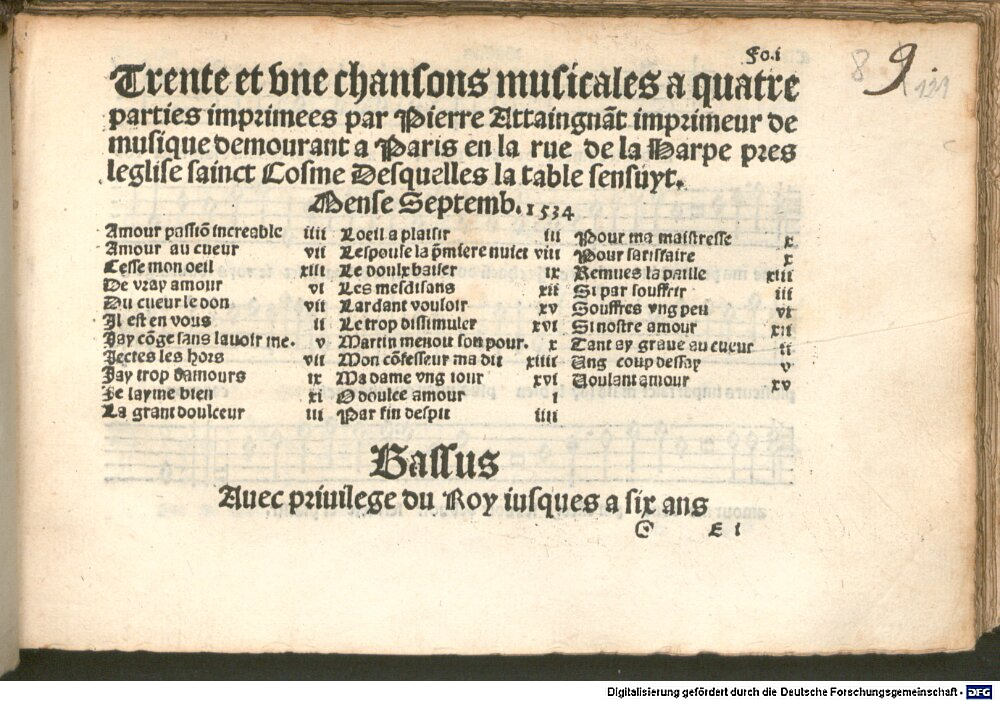 Fo.i
8 9 121
Trente et vne chansons musicales a quatre
parties imprimees par Pierre Attaingnãt imprimeur de
musique demourant a Paris en la rue de la Harpe pres
leglise sainct Cosme Desquelles la table sensuyt.
Mense Septemb. 1534
Amour passiõ increable iiii
Amour au cueur vii
Cesse mon oeil xiii
De vray amour vi
Du cueur le don vii
Il est en vous ii
Jay cõge sans lauoir me. v
Jectes les hors vii
Jay trop damours ix
Je layme bien xi
La grant doulceur iii
Loeil a plaisir iii
Lespouse la p̃miere nuict viii
Le doulx baiser ix
Les mesdisans xii
Lardant vouloir xv
Le trop dissimuler xvi
Martin menoit son pour. x
Mon cõfesseur ma dit xiiii
Ma dame vng iour xvi
O doulce amour i
Par fin despit iiii
Pour ma maistresse x
Pour satisfaire x
Remues la paille xiii
Si par souffrir iii
Souffres vng peu vi
Si nostre amour xii
Tant ay graue au cueur ii
Ung coup dessay v
Voulant amour xv
Bassus
Auec priuilege du Roy iusques a six ans
E i
Digitalisierung gefördert durch die Deutsche Forschungsgemeinschaft - DFG